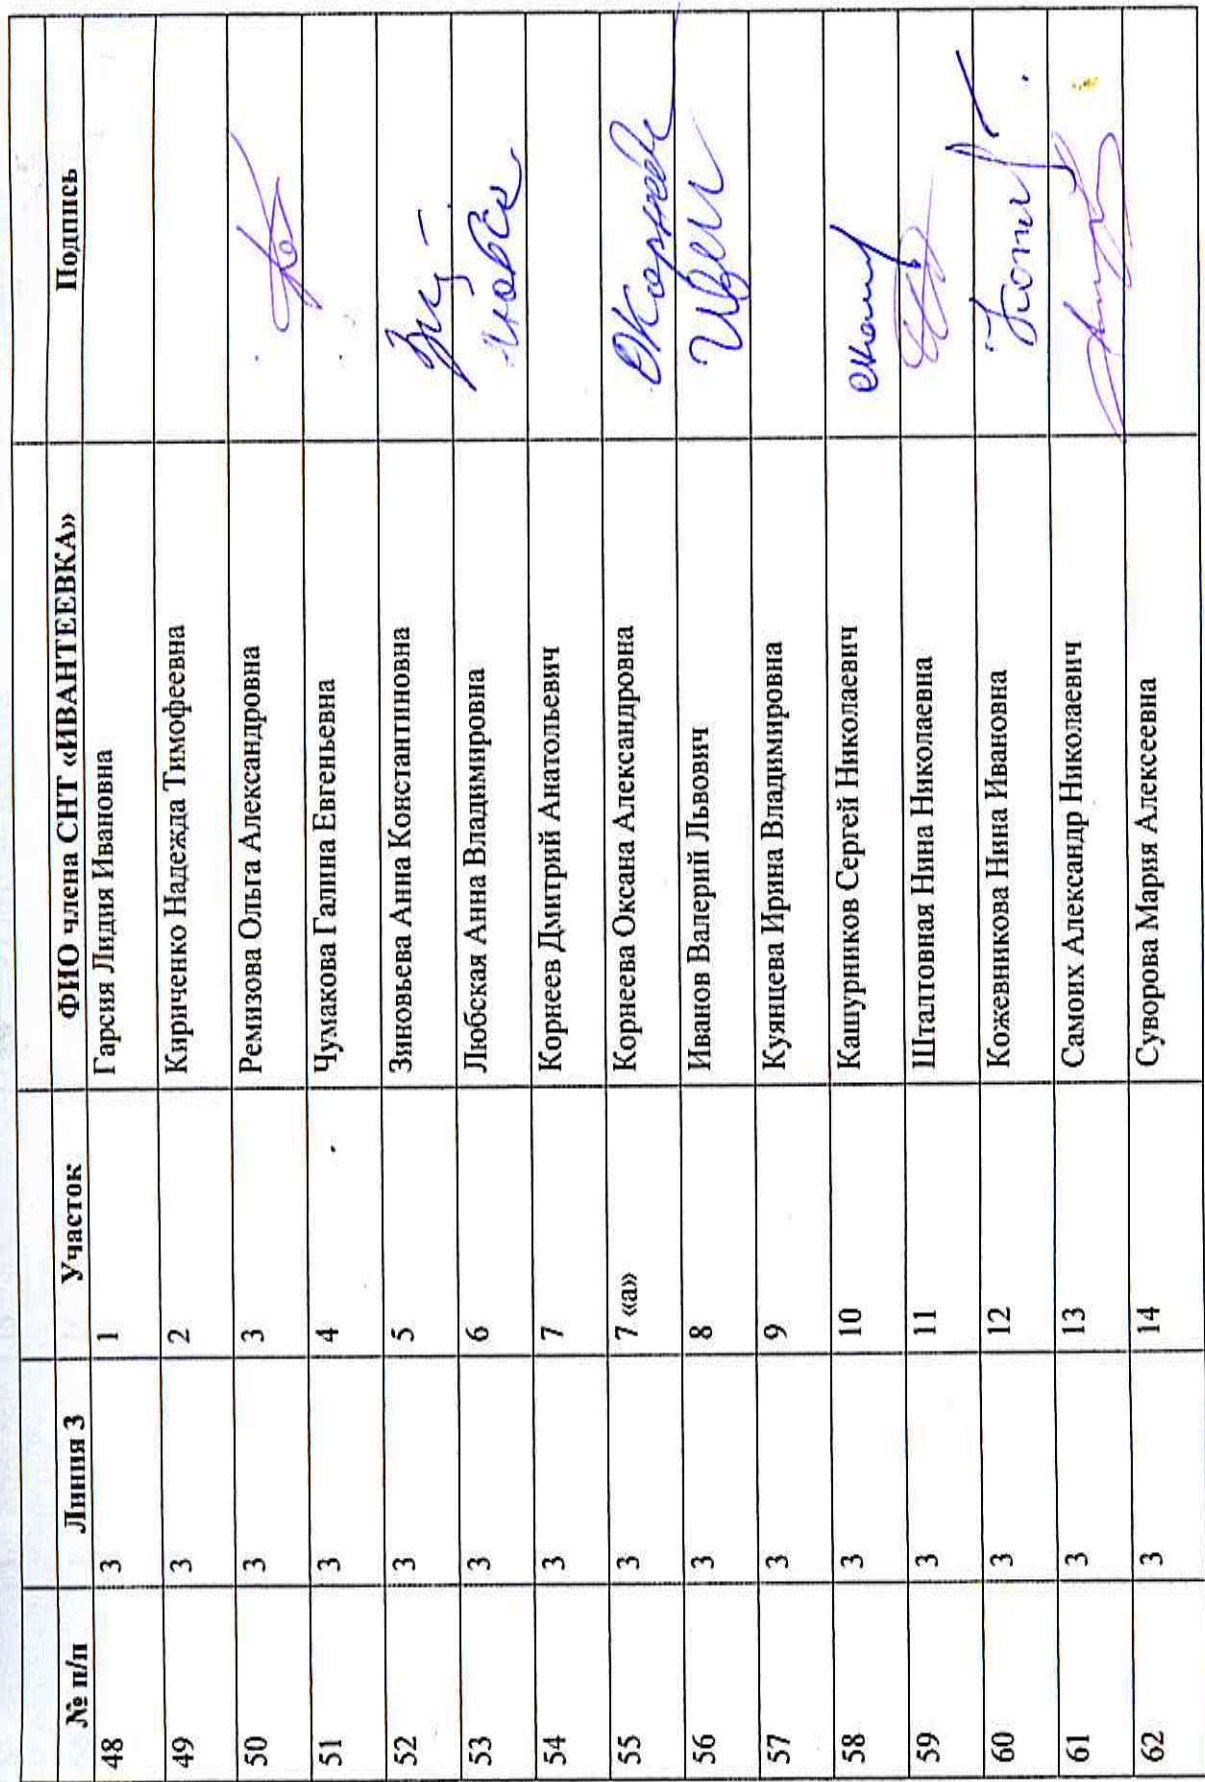 № п/п Линия 3 Участок ФИО члена СНТ «ИВАНТЕЕВКА» Подпись
48 3 1 Гарсия Лидия Ивановна
49 3 2 Кириченко Надежда Тимофеевна
50 3 3 Ремизова Ольга Александровна
51 3 4 Чумакова Галина Евгеньевна
52 3 5 Зиновьева Анна Константиновна
53 3 6 Любская Анна Владимировна
54 3 7 Корнеев Дмитрий Анатольевич
55 3 7 «а» Корнеева Оксана Александровна
56 3 8 Иванов Валерий Львович
57 3 9 Куянцева Ирина Владимировна
58 3 10 Кашурников Сергей Николаевич
59 3 11 Шталтовная Нина Николаевна
60 3 12 Кожевникова Нина Ивановна
61 3 13 Самоих Александр Николаевич
62 3 14 Суворова Мария Алексеевна